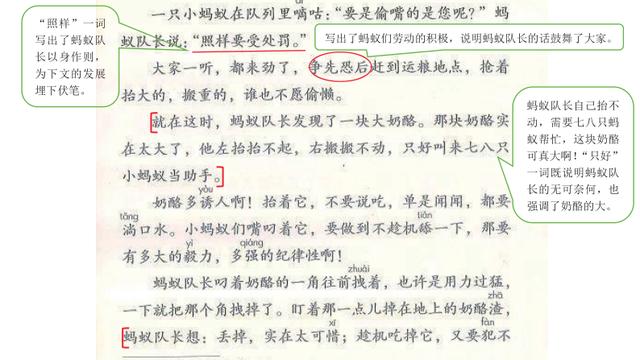 一只小蚂蚁在队列里嘀咕：“要是偷嘴的是您呢？”蚂
蚁队长说：“照样要受处罚。”
“照样”一词
写出了蚂蚁队
长以身作则，
为下文的发展
埋下伏笔。
写出了蚂蚁们劳动的积极，说明蚂蚁队长的话鼓舞了大家。
大家一听，都来劲了，争先恐后赶到运粮地点，抢着
抬大的，搬重的，谁也不愿偷懒。
就在这时，蚂蚁队长发现了一块大奶酪。那块奶酪实
在太大了，他左抬抬不起，右搬搬不动，只好叫来七八只
小蚂蚁当助手。
蚂蚁队长自己抬不
动，需要七八只蚂
蚁帮忙，这块奶酪
可真大啊！“只好”
一词既说明蚂蚁队
长的无可奈何，也
强调了奶酪的大。
yòu
奶酪多诱人啊！抬着它，不要说吃，单是闻闻，都要
tǎng tiǎn
淌口水。小蚂蚁们嘴叼着它，要做到不趁机舔一下，那要
yì qiáng
有多大的毅力，多强的纪律性啊！
zhuài
蚂蚁队长叼着奶酪的一角往前拽着，也许是用力过猛，
zhā
一下就把那个角拽掉了。盯着那一点儿掉在地上的奶酪渣，
xī fàn
蚂蚁队长想：丢掉，实在太可惜；趁机吃掉它，又要犯不